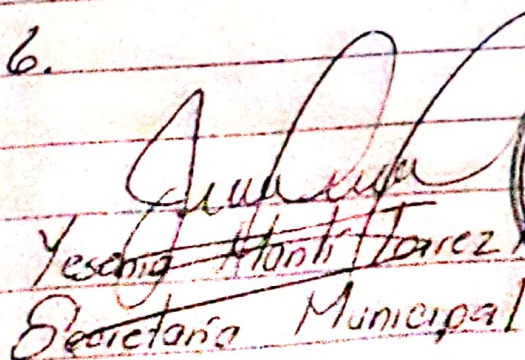 6.
Yesenia Torrez
Secretaria Municipal